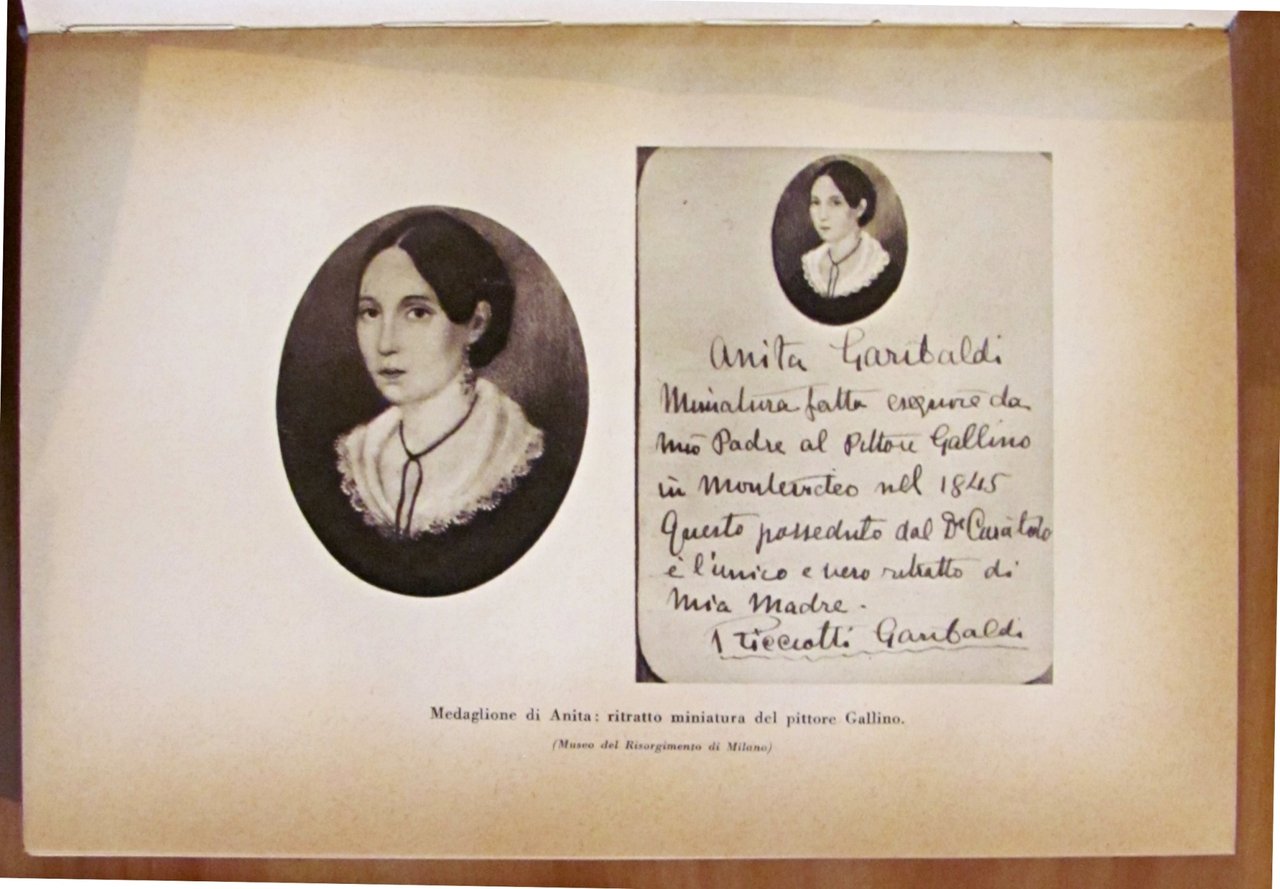 Anita Garibaldi
Miniatura fatta eseguire da
mio Padre al Pittore Gallino
in Montevideo nel 1845
Questo posseduto dal Dr
è l'unico e vero ritratto di
Mia Madre.
Ricciotti Garibaldi
Medaglione di Anita: ritratto miniatura del pittore Gallino.
(Museo del Risorgimento di Milano)